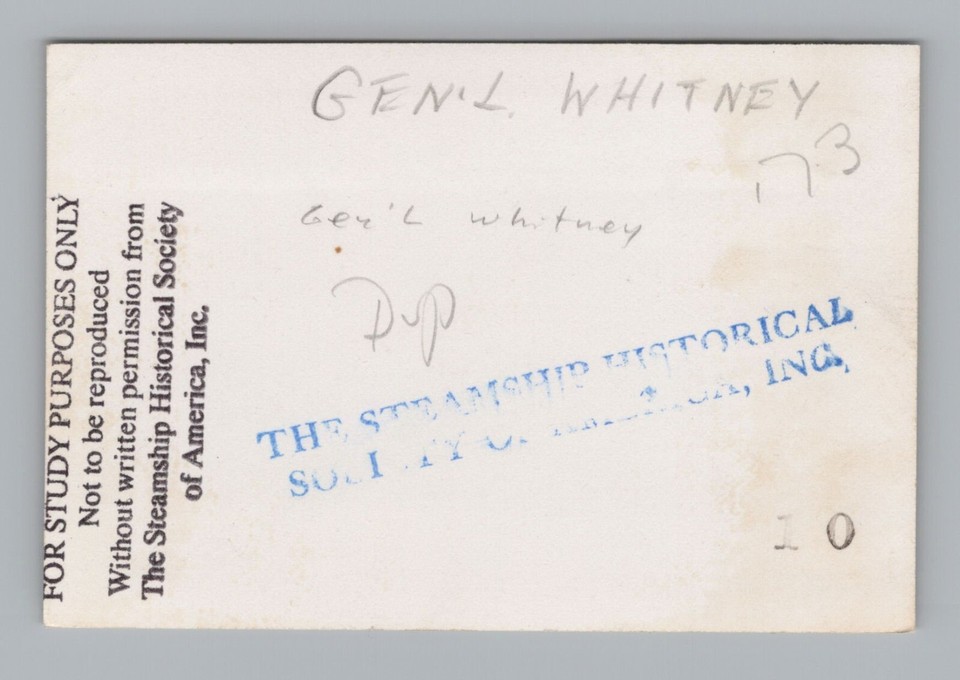 GEN'L. WHITNEY
173
Gen'L Whitney
Dup
THE STEAMSHIP HISTORICAL
SOCIETY OF AMERICA, INC.
10
FOR STUDY PURPOSES ONLY
Not to be reproduced
Without written permission from
The Steamship Historical Society
of America, Inc.